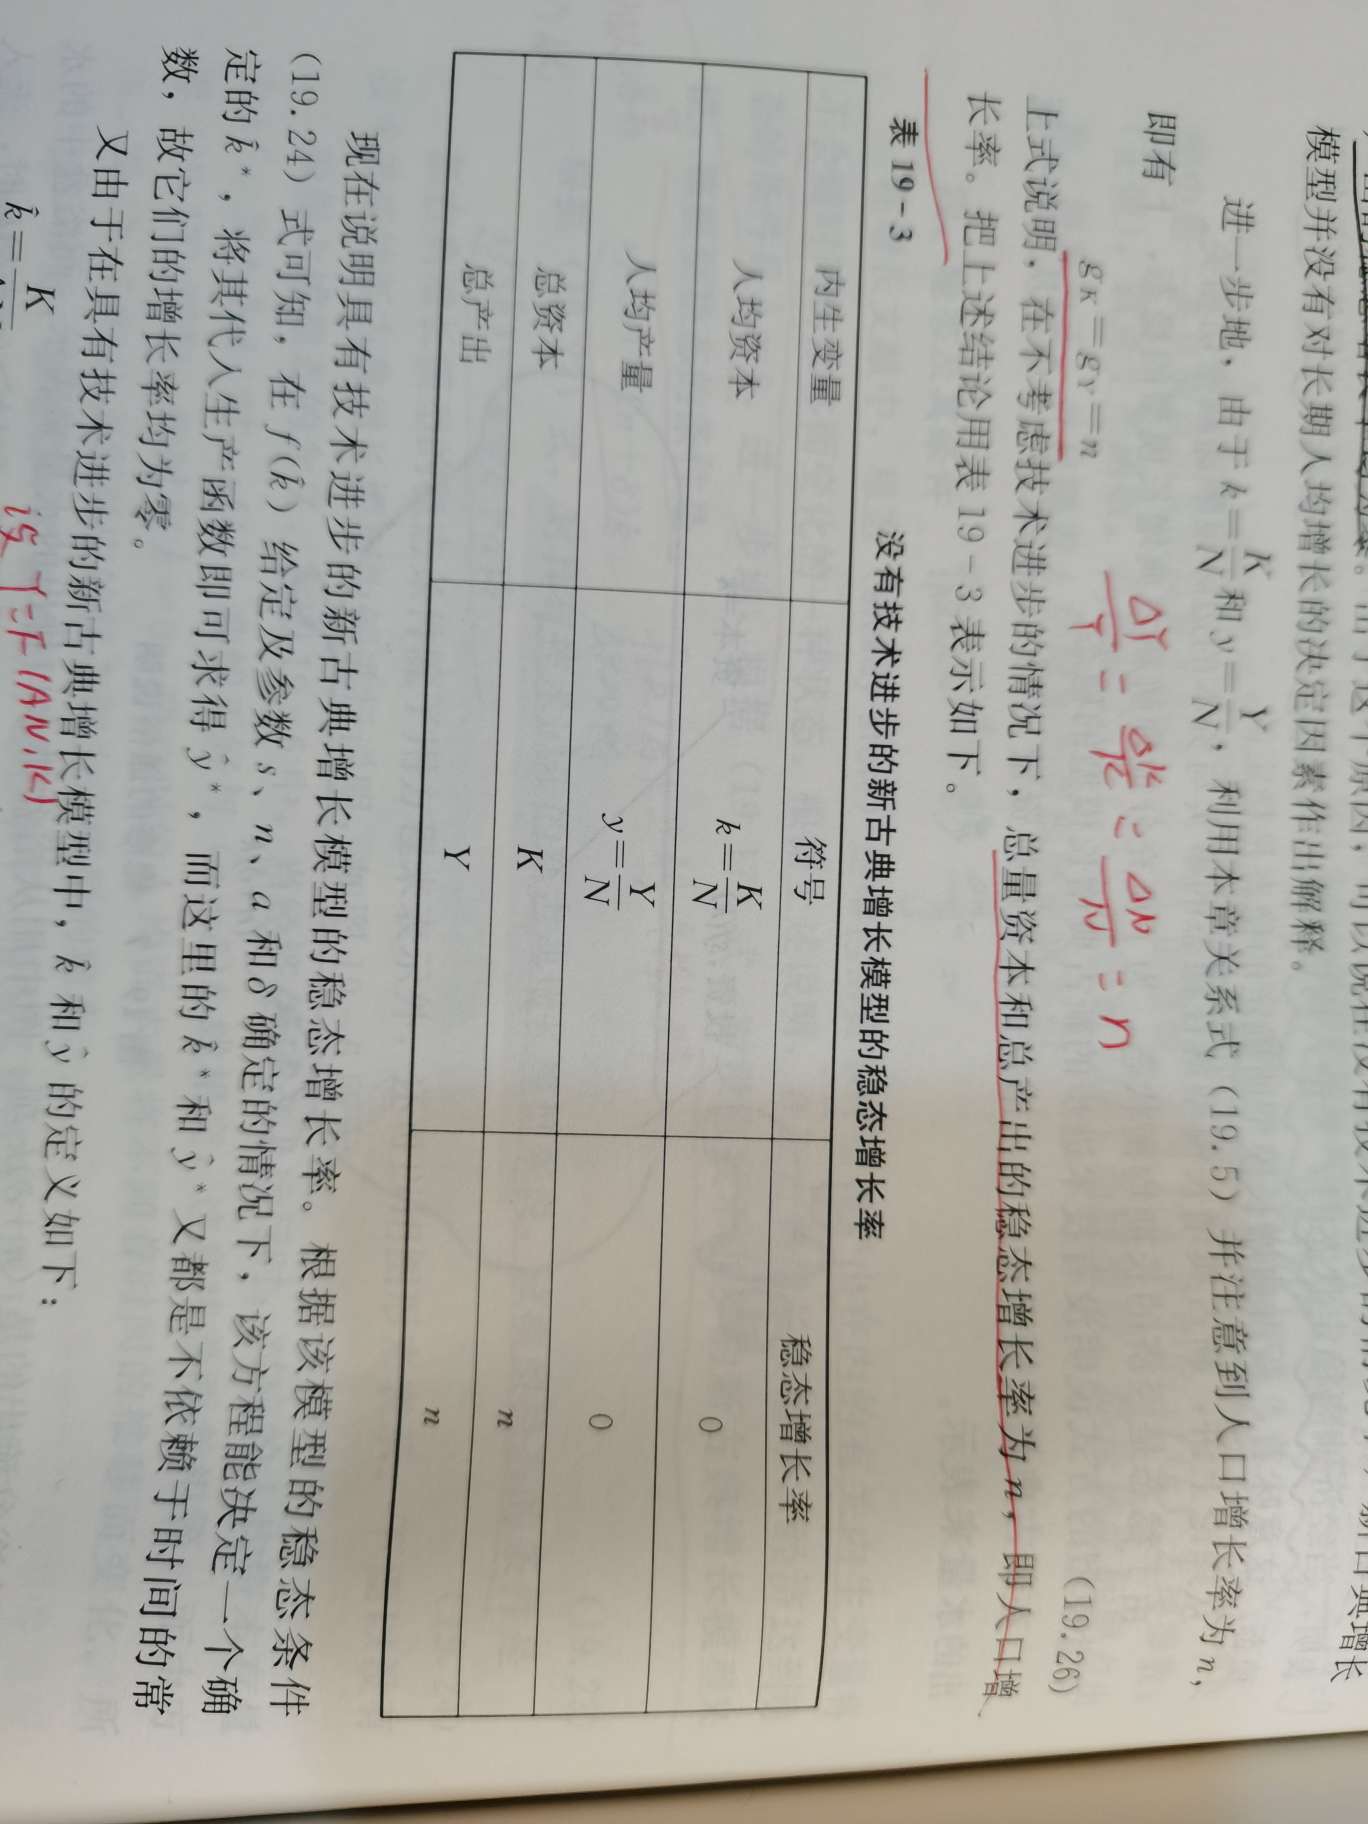 模型并没有对长期人均增长的决定因素作出解释。
进一步地，由于 k=K/N 和 y=Y/N，利用本章关系式（19.5）并注意到人口增长率为 n，
即有
g_K=g_Y=n （19.26）
ΔY/Y = ΔK/K = ΔN/N = n
上式说明，在不考虑技术进步的情况下，总量资本和总产出的稳态增长率为 n，即人口增
长率。把上述结论用表 19-3 表示如下。
表 19-3 没有技术进步的新古典增长模型的稳态增长率
内生变量 符号 稳态增长率
人均资本 k=K/N 0
人均产量 y=Y/N 0
总资本 K n
总产出 Y n
现在说明具有技术进步的新古典增长模型的稳态增长率。根据该模型的稳态条件
（19.24）式可知，在 f(k̂) 给定及参数 s、n、a 和 δ 确定的情况下，该方程能决定一个确
定的 k̂*，将其代入生产函数即可求得 ŷ*，而这里的 k̂* 和 ŷ* 又都是不依赖于时间的常
数，故它们的增长率均为零。
又由于在具有技术进步的新古典增长模型中，k̂ 和 ŷ 的定义如下：
设 Y=F(AN,K)